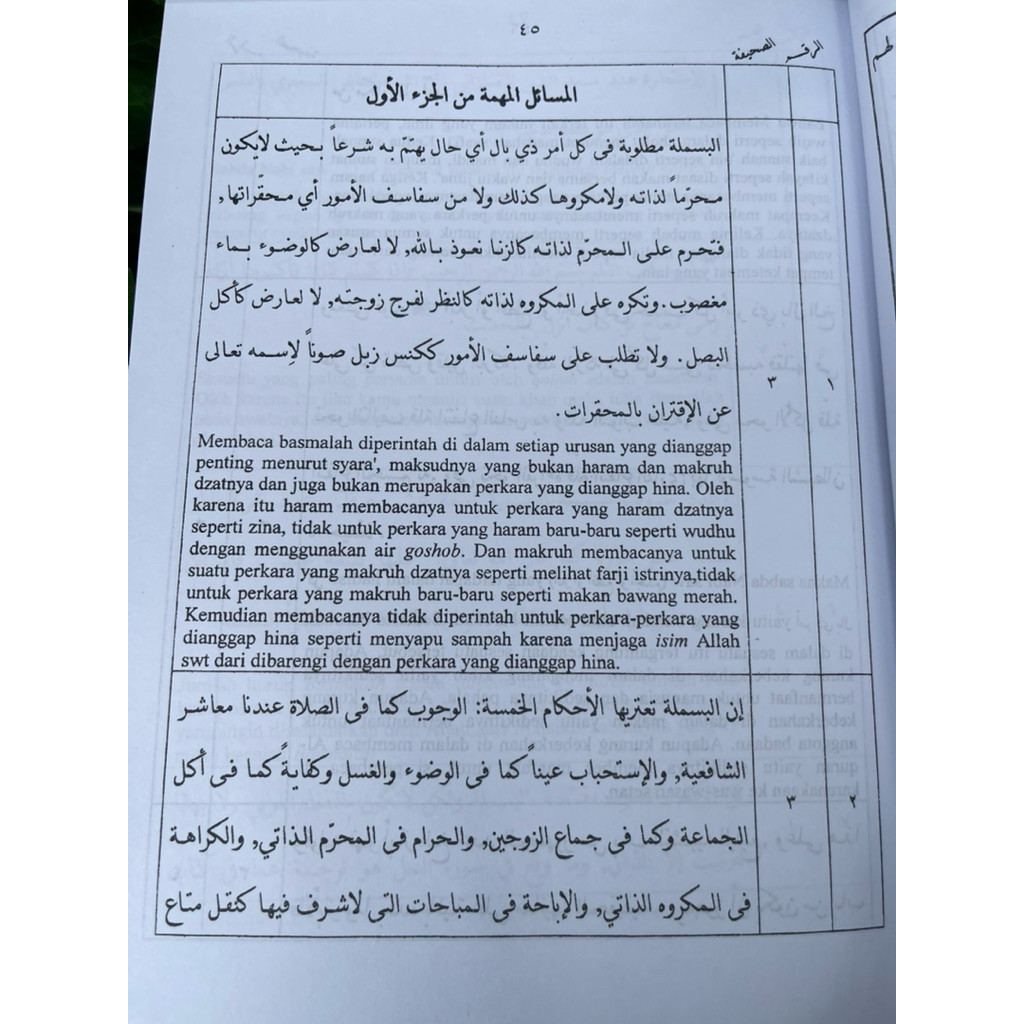 ٤٥
الرقم الصحيفة
المسائل المهمة من الجزء الأول
البسملة مطلوبة فى كل أمر ذي بال أي حال يهتمّ به شرعاً بحيث لايكون
محرّماً لذاته ولامكروها كذلك ولا من سفاسف الأمور أي محقراتها,
فتحرم على المحرّم لذاته كالزنا نعوذ بالله, لا لعارض كالوضوء بماء
مغصوب. وتكره على المكروه لذاته كالنظر لفرج زوجته, لا لعارض كأكل
البصل. ولا تطلب على سفاسف الأمور ككنس زبل صوناً لاِسمه تعالى
عن الإقتران بالمحقرات.
١ ٣
Membaca basmalah diperintah di dalam setiap urusan yang dianggap
penting menurut syara', maksudnya yang bukan haram dan makruh
dzatnya dan juga bukan merupakan perkara yang dianggap hina. Oleh
karena itu haram membacanya untuk perkara yang haram dzatnya
seperti zina, tidak untuk perkara yang haram baru-baru seperti wudhu
dengan menggunakan air goshob. Dan makruh membacanya untuk
suatu perkara yang makruh dzatnya seperti melihat farji istrinya,tidak
untuk perkara yang makruh baru-baru seperti makan bawang merah.
Kemudian membacanya tidak diperintah untuk perkara-perkara yang
dianggap hina seperti menyapu sampah karena menjaga isim Allah
swt dari dibarengi dengan perkara yang dianggap hina.
إن البسملة تعتريها الأحكام الخمسة: الوجوب كما فى الصلاة عندنا معاشر
الشافعية, والإستحباب عيناً كما فى الوضوء والغسل وكفايةً كما فى أكل
٢ ٣
الجماعة وكما فى جماع الزوجين, والحرام فى المحرّم الذاتي, والكراهة
فى المكروه الذاتي, والإباحة فى المباحات التى لاشرف فيها كنقل متاع